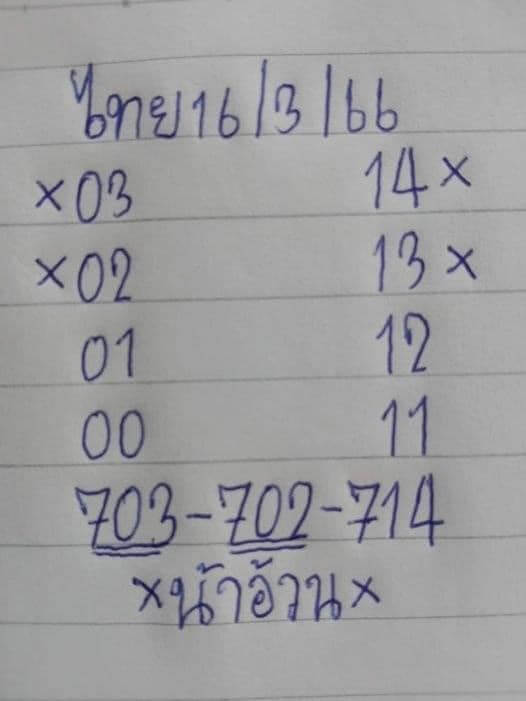 ไทย16/3/66
×03 14×
×02 13×
01 12
00 11
703-702-714
×น้าอ้วน×